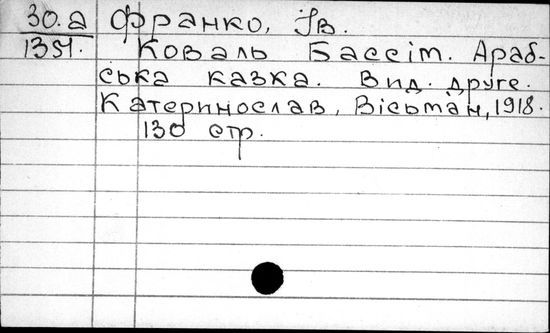 30.а Франко, Ів.
1351. Коваль Бассім. Араб-
ська казка. Вид. друге.
Катеринослав, Вісьман, 1918.
130 стр.